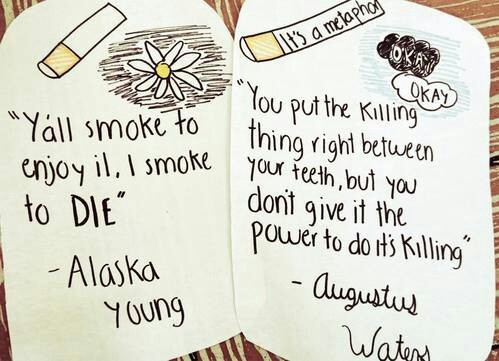 "Y'all smoke to
enjoy it, I smoke
to DIE"
- Alaska
Young
It's a metaphor
OKAY
OKAY
"You put the Killing
thing right between
your teeth, but you
don't give it the
power to do it's Killing"
- Augustus
Waters